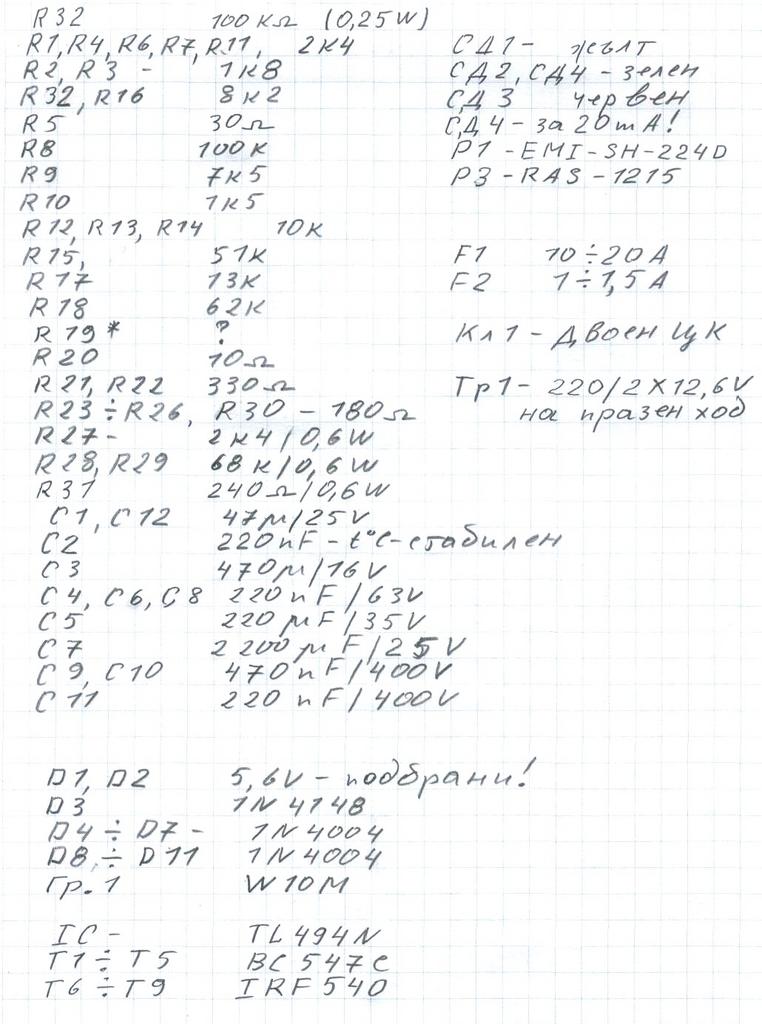 R32 100 кΩ (0,25W)
R1, R4, R6, R7, R11, 2к4
R2, R3 - 1к8
R32, R16 8к2
R5 30Ω
R8 100к
R9 7к5
R10 1к5
R12, R13, R14 10к
R15, 51к
R17 13к
R18 62к
R19* ?
R20 10Ω
R21, R22 330Ω
R23 ÷ R26, R30 - 180Ω
R27 - 2к4/0,6W
R28, R29 68к/0,6W
R31 240Ω/0,6W
C1, C12 47μ/25V
C2 220nF - t°C-стабилен
C3 470μ/16V
C4, C6, C8 220nF/63V
C5 220μF/35V
C7 2200μF/25V
C9, C10 470nF/400V
C11 220nF/400V
D1, D2 5,6V - подбрани!
D3 1N4148
D4 ÷ D7 - 1N4004
D8, ÷ D11 1N4004
Гр.1 W10M
IC - TL494N
T1 ÷ T5 BC547C
T6 ÷ T9 IRF540
СД1 - жълт
СД2, СД4 - зелен
СД3 червен
СД4 - за 20mA!
P1 - EMI-SH-224D
P3 - RAS-1215
F1 10÷20A
F2 1÷1,5A
Кл1 - двоен ЦК
Тр1 - 220/2X12,6V
на празен ход